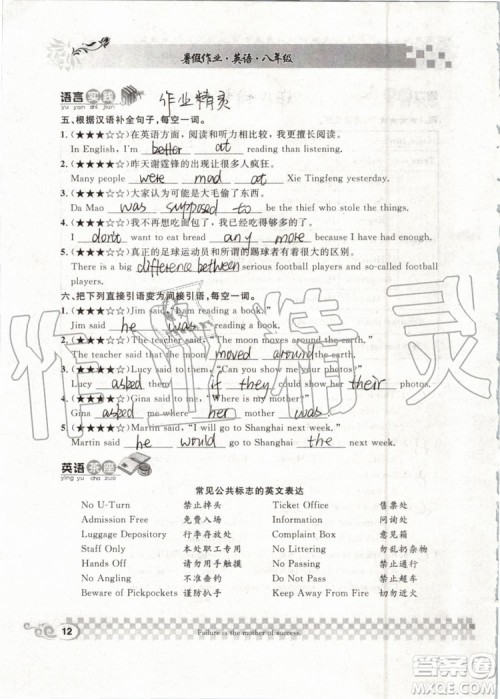 暑假作业·英语·八年级
语言实践 作业精灵
yu yan shi jian
五、根据汉语补全句子,每空一词。
1.(★★★☆☆)在英语方面,阅读和听力相比较,我更擅长阅读。
In English, I'm better at reading than listening.
2.(★★★☆☆)昨天谢霆锋的出现让很多人疯狂。
Many people were mad at Xie Tingfeng yesterday.
3.(★★★☆☆)大家认为可能是大毛偷了东西。
Da Mao was supposed to be the thief who stole the things.
4.(★★★☆☆)我不再想吃面包了,我已经吃得够多的了。
I don't want to eat bread any more because I have had enough.
5.(★★★☆☆)真正的足球运动员和所谓的踢球者有着很大的区别。
There is a big difference between serious football players and so-called football
players.
六、把下列直接引语变为间接引语,每空一词。
1.(★★★☆☆)Jim said, "I am reading a book."
Jim said he was reading a book.
2.(★★★☆☆)The teacher said, "The moon moves around the earth."
The teacher said the moon moved around the earth.
3.(★★★☆☆)Lucy said to them, "Can you show me your photos?"
Lucy asked them if they could show her their photos.
4.(★★★☆☆)Gina said to me, "Where is my mother?"
Gina asked me where her mother was.
5.(★★★☆☆)Martin said, "I will go to Shanghai next week."
Martin said he would go to Shanghai the next week.
英语茶座
ying yu cha zuo
常见公共标志的英文表达
No U-Turn 禁止掉头 Ticket Office 售票处
Admission Free 免费入场 Information 问询处
Luggage Depository 行李存放处 Complaint Box 意见箱
Staff Only 本处职工专用 No Littering 勿乱扔杂物
Hands Off 请勿用手触摸 No Passing 禁止通行
No Angling 不准垂钓 Do Not Pass 禁止超车
Beware of Pickpockets 谨防扒手 Keep Away From Fire 切勿近火
12
Failure is the mother of success.
作业精灵
答案圈
MXQE.COM